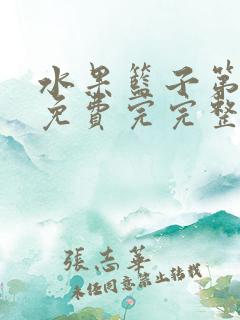 水果籃子第
免費完完整
張志華
未经同意禁止转载